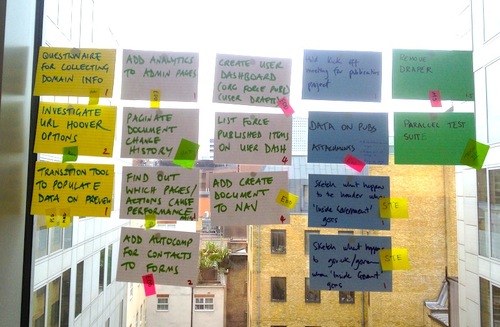 QUESTIONNAIRE
FOR COLLECTING
DOMAIN INFO
1
INVESTIGATE
URL HOOVER
OPTIONS
2
TRANSITION TOOL
TO POPULATE
DATA ON PREVIEW
ADD ANALYTICS
TO ADMIN PAGES
1
PAGINATE
DOCUMENT
CHANGE
HISTORY
FIND OUT
WHICH PAGES/
ACTIONS CAUSE
PERFORMANCE
ADD AUTOCOMP
FOR CONTACTS
TO FORMS
2
CREATE USER
DASHBOARD
(ORG FORCE PUB)
(USER DRAFTS)
LIST FORCE
PUBLISHED ITEMS
ON USER DASH
4
ADD CREATE
DOCUMENT
TO NAV
4
Kick off
meeting for publications
project
DATA ON PUBS
ATTACHMENTS
Sketch what happens
to the header when
'Inside Government'
goes
SITE
Sketch what happens
to
when 'Inside Govment'
goes
1
SITE
REMOVE
DRAPER
1
PARALLEL TEST
SUITE